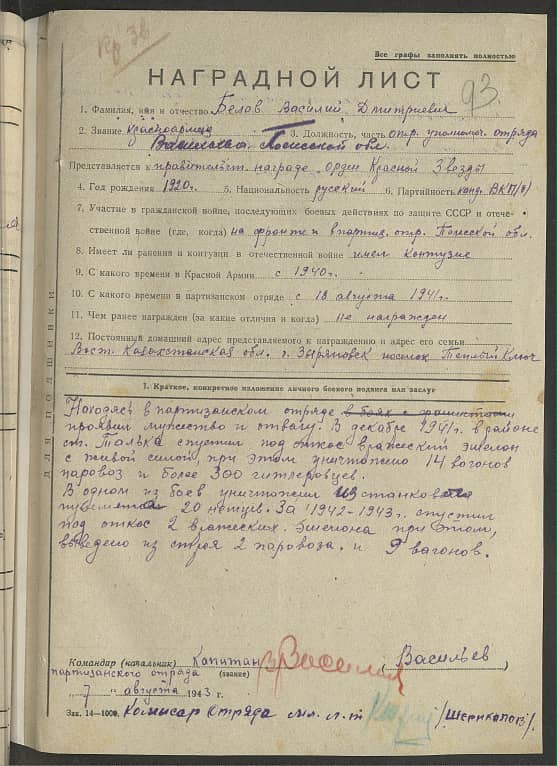 Кр Зв
Все графы заполнять полностью
НАГРАДНОЙ ЛИСТ
93.
1. Фамилия, имя и отчество Белов Василий Дмитриевич
2. Звание красноармеец 3. Должность, часть отр. уполномоч. отряда
Васильева Полесской обл.
Представляется к правительств. награде орден Красной Звезды
4. Год рождения 1920г. 5. Национальность русский 6. Партийность канд. ВКП(б)
7. Участие в гражданской войне, последующих боевых действиях по защите СССР и отече-
ственной войне (где, когда) на фронте и в партиз. отр. Полесской обл.
8. Имеет ли ранения и контузии в отечественной войне имел контузию
9. С какого времени в Красной Армии с 1940г.
10. С какого времени в партизанском отряде с 18 августа 1941г.
11. Чем ранее награжден (за какие отличия и когда) не награжден
12. Постоянный домашний адрес представляемого к награждению и адрес его семьи
Вост. Казахстанская обл. г. Зыряновск поселок Теплый Ключ
ДЛЯ ПОДШИВКИ
I. Краткое, конкретное изложение личного боевого подвига или заслуг
Находясь в партизанском отряде в боях с фашистами
проявил мужество и отвагу. В декабре 1941г. в районе
ст. Талька спустил под откос вражеский эшелон
с живой силой, при этом уничтожено 14 вогонов
паровоз и более 300 гитлеровцев.
В одном из боев уничтожил из станкового
пулемета 20 немцев. За 1942-1943г. спустил
под откос 2 вражеских эшелона при этом,
выведено из строя 2 паровоза и 9 вагонов.
Командир (начальник) Капитан (Васильев)
партизанского отряда (звание)
„7" августа 1943 г.
Зак. 14—1000. Комисар отряда мл. л-т